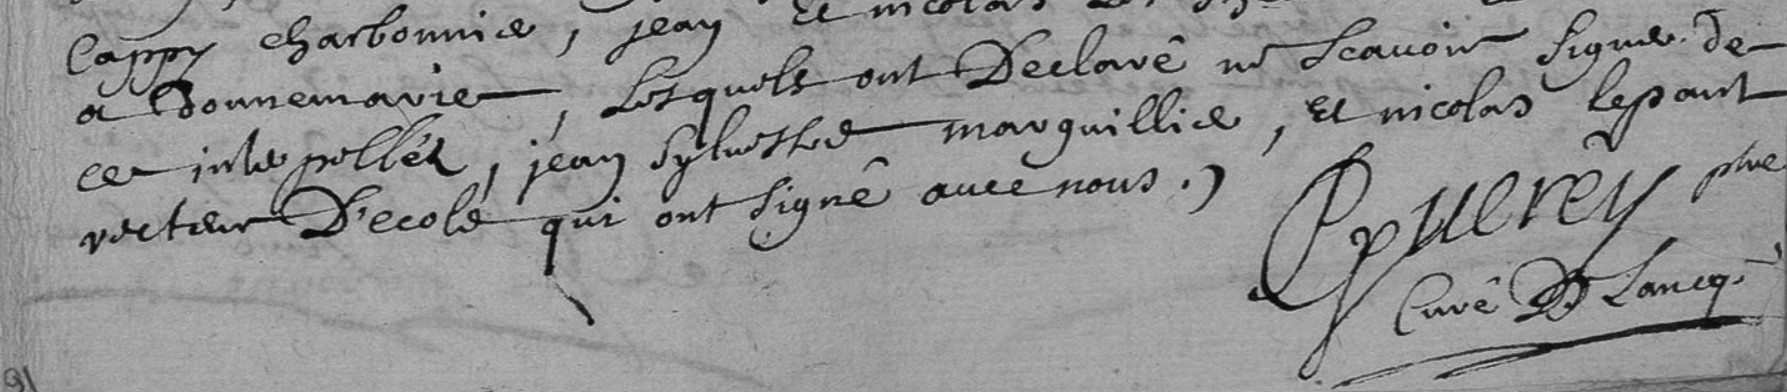 Cappy charbonnier, jean et nicolas
a Donnemarie, Lesquels ont Declaré ne Scavoir signer de
ce interpellez, jean sylvestre marguillier, et nicolas lepant
recteur D'ecole qui ont signé avec nous.
ptre
Curé De Lancq.